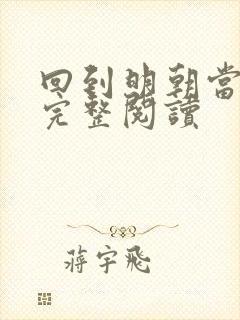 回到明朝當
完整閱讀
蔣宇飛